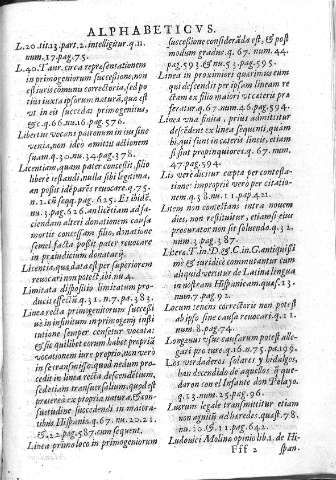 ALPHABETICVS.
L.20.tit.13.part.2.intelligitur.q.11.
num.17.pag.75.
L.40. Taur. circa representationem
in primogeniorum successione, non
est iuris communis correctoria, sed po
tius iuxta ipsorum naturã, quæ est
vt in eis succedat primogenitus,
&c.q.66.nu.16.pag.576.
Libertus vocans patronum in ius sine
venia, non ideo amittit actionem
suam.q.30.nu.34.pag.378.
Licentiam, quam pater concessit, filio
libere testandi, nulla sibi legitima,
an possit idẽ pater reuocare.q.75.
n.1.cũ seqq.pag.625. Et ibidẽ.
nu.3.pag.626. an licẽtiam ad fa-
ciendam alteri donationem causa
mortis cauissam filio, donatione
semel facta possit pater reuocare
in præiudicium donatarij.
Licentia, qua data est per superiorem
reuocari non potest, ibi nu.4.
Limitata dispositio limitatum pro-
ducit effectũ.q.31.n.7.pa.382.
Linea recta primogeniorum successi
uũ in infinitum in primogenij insti
tutione semper censetur vocata:
& sic quilibet eorum habet propriã
vocationem iure proprio, non vero
in se transmissã: quod nedum proce-
dit in linea recta descendentium,
sed etiam transuersalium; quod est
præter ea ex propria natura, & con-
suetudine succedendi in maiora-
tibus Hispanis.q.67.nu.20.21.
&.22.pag.587.cum sequent.
Linea primo loco in primogeniorum
successione considerãda est, & post
modum gradus.q.67.num.44.
pag.593.& nu.53.pag.595.
Linea in proximiores quærimus eum
qui descendit per ipsam lineam re
ctam ex filio maiori vt cæteris præ
feratur.q.67.num.46.pag.594.
Linea vna finita, prius admittitur
descendẽt. ex linea sequenti, quam
hi, qui sunt in cæteris lineis, etiam
si sint propinquiores.q.67.num.
47.pag.594.
Lis vere dicitur cæpta per contesta-
tione: impropriè vero per citatio-
nem.q.3.nu.11.pag.42.
Litem non contestans intra nouem
dies, non restituitur, etiamsi eius
procurator non sit soluendo.q.32.
num.3.pag.387.
Litera. T. in. D. & C. in. G. antiquissi
mè & euidicè commutantur cum
aliquid veritur de Latina lingua
in nostram Hispanicam.quæs.23.
num.7.pag.92.
Locum tenens correctoris non potest
ab ipso sine causa reuocari.q.21.
num.8.pag.74.
Longæuus visus causarum potest alle-
gari pro iure.q.16.n.75.pa.199.
Los verdaderos solares y hidalgos,
han decendido de aquellos, q̃ que-
daron con el Infante don Pelayo.
q.13.num.25.pag.96.
Lucrum legale transmittitur etiam
non agniti ad hæredes.quæst.78.
nu.10.&.11.pag.642.
Ludouici Molinæ opinio lib.2. de Hi-
Fff 2 span.